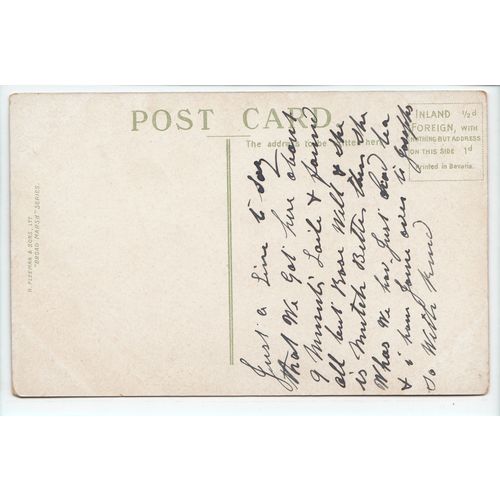 POST CARD
The address to be written here
INLAND ½d
FOREIGN, WITH
NOTHING BUT ADDRESS
ON THIS SIDE 1d
Printed in Bavaria.
"BROAD MARSH" SERIES.
Just a Line to Say
that We Got here about
9 Minuts Late & found
all but Rose Well & she
is Mutch Better then she
Whas We hav Just had tea
& i have Gone over to
So With Kind